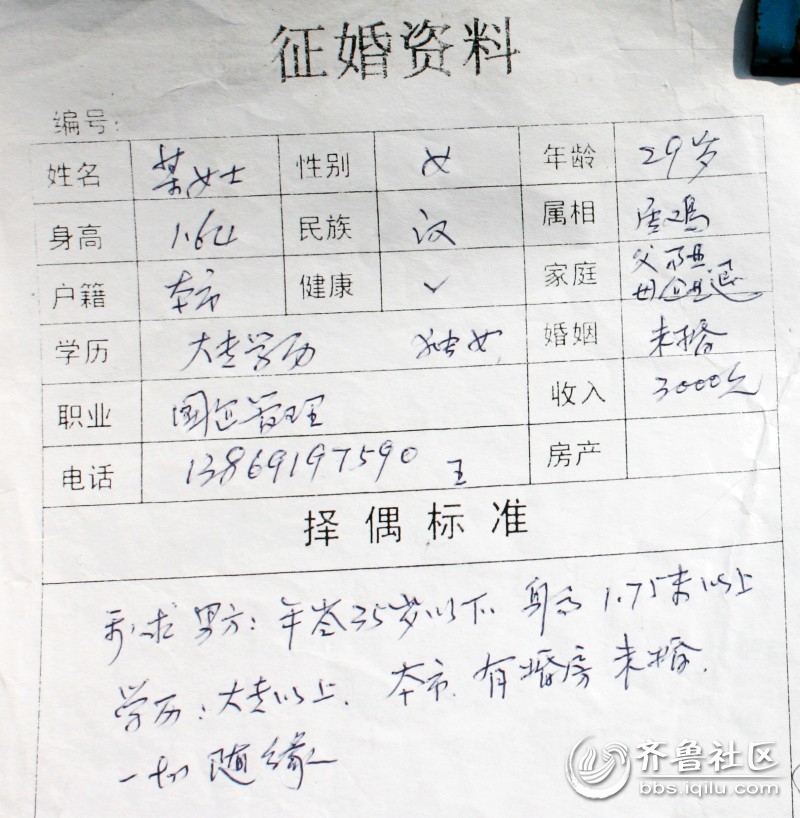 征婚资料
编号:
姓名 某女士 性别 女 年龄 29岁
身高 1.62 民族 汉 属相 属鸡
户籍 本市 健康 ✓ 家庭 父母企退
学历 大专学历 独女 婚姻 未婚
职业 国企管理 收入 3000元
电话 13869197590 王 房产
择偶标准
要求男方: 年龄35岁以下. 身高1.75米以上
学历: 大专以上. 本市. 有婚房 未婚.
一切随缘
齐鲁社区
bbs.iqilu.com